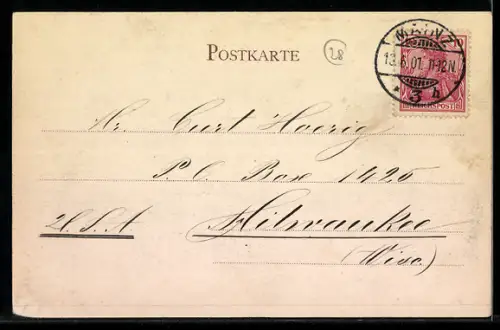 MAINZ
13.6.01. 11-12N.
* 3 h
POSTKARTE
28
REICHSPOST
Hr. Curt Hoerig
P O. Box 1425
Milwaukee
U.S.A
(Wisc.)